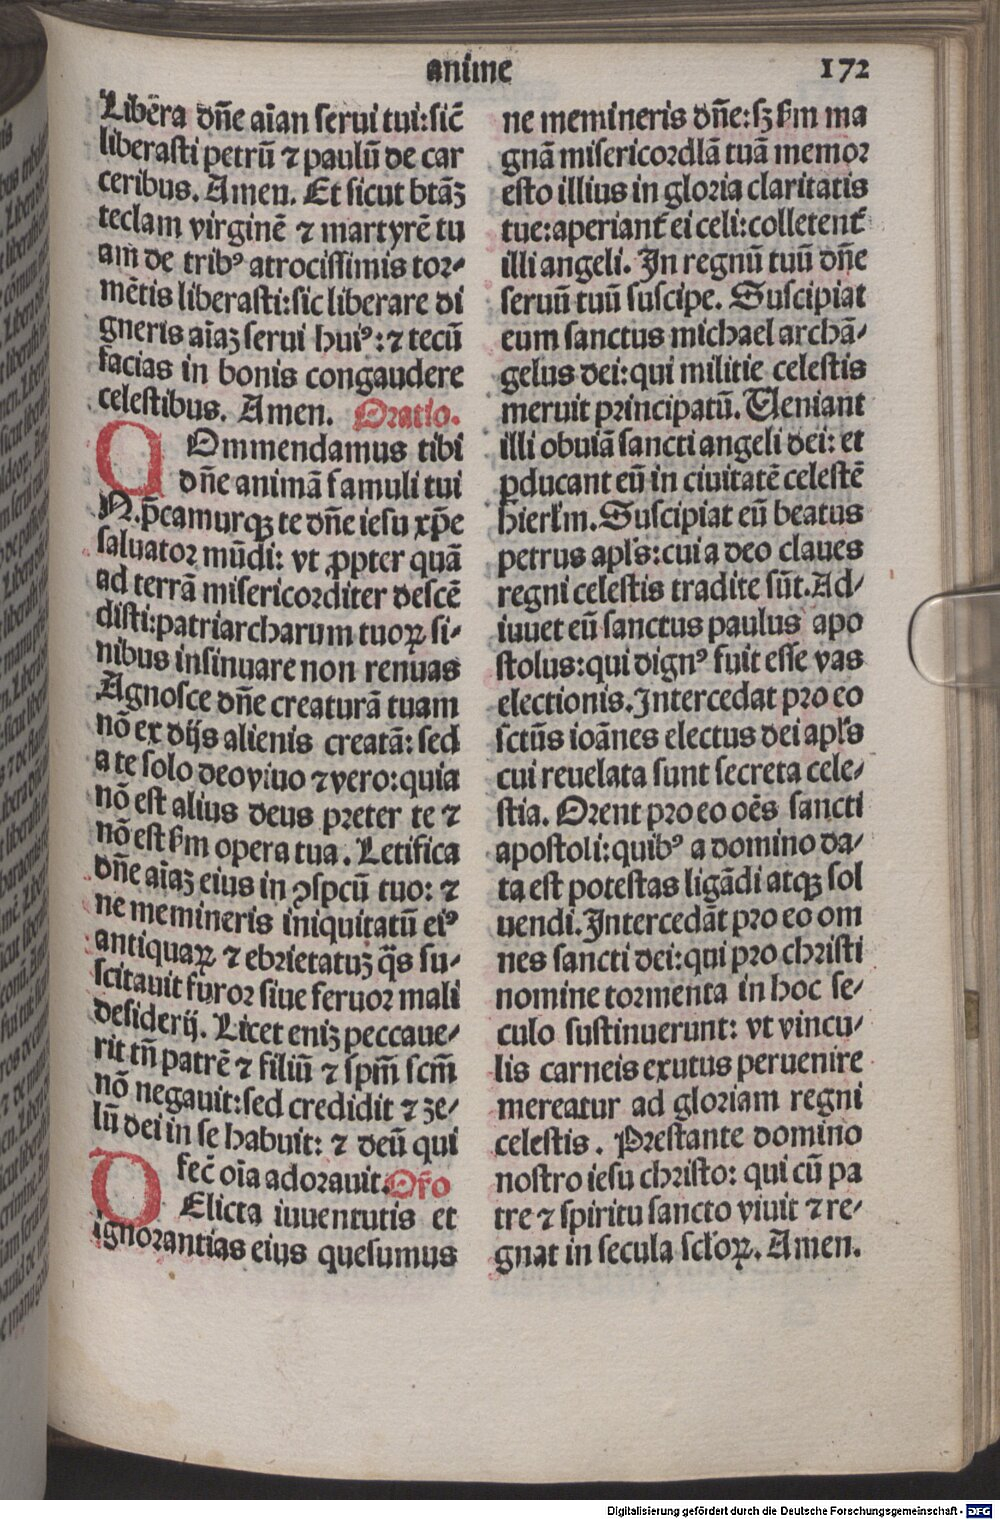 anime
172
Libera dñe aĩan serui tui: sic̃
liberasti petrũ ⁊ paulũ de car
ceribus. Amen. Et sicut btãꝫ
teclam virginẽ ⁊ martyrẽ tu
am de tribꝰ atrocissimis tor⸗
mẽtis liberasti: sic liberare di
gneris aĩaꝫ serui huiꝰ: ⁊ tecũ
facias in bonis congaudere
celestibus. Amen. Oratio.
COmmendamus tibi
dñe animã famuli tui
N. p̃camurqꝫ te dñe iesu xp̃e
saluator mũdi: vt ꝓpter quã
ad terrã misericorditer descẽ
disti: patriarcharum tuoꝝ si⸗
nibus insinuare non renuas
Agnosce dñe creaturã tuam
nõ ex dijs alienis creatã: sed
a te solo deo viuo ⁊ vero: quia
nõ est alius deus preter te ⁊
nõ est ẜm opera tua. Letifica
dñe aĩaꝫ eius in ꝯspcũ tuo: ⁊
ne memineris iniquitatũ eiꝰ
antiquaꝝ ⁊ ebrietatuꝫ q̃s su⸗
scitauit furor siue feruor mali
desiderij. Licet eniꝫ peccaue⸗
rit tñ patrẽ ⁊ filiũ ⁊ spm̃ scm̃
nõ negauit: sed credidit ⁊ ze⸗
lũ dei in se habuit: ⁊ deũ qui
fec̃ oĩa adorauit. Or̃o
DElicta iuuentutis et
ignorantias eius quesumus
ne memineris dñe: sꝫ ẜm ma
gnã misericordiã tuã memor
esto illius in gloria claritatis
tue: aperiant̃ ei celi: colletent̃
illi angeli. In regnũ tuũ dñe
seruũ tuũ suscipe. Suscipiat
eum sanctus michael archã⸗
gelus dei: qui militie celestis
meruit principatũ. Ueniant
illi obuiã sancti angeli dei: et
ꝑducant eũ in ciuitatẽ celestẽ
hierłm. Suscipiat eũ beatus
petrus apłs: cui a deo claues
regni celestis tradite sũt. Ad⸗
iuuet eũ sanctus paulus apo
stolus: qui dignꝰ fuit esse vas
electionis. Intercedat pro eo
sctũs ioãnes electus dei apłs
cui reuelata sunt secreta cele⸗
stia. Orent pro eo oẽs sancti
apostoli: quibꝰ a domino da⸗
ta est potestas ligãdi atqꝫ sol
uendi. Intercedãt pro eo om
nes sancti dei: qui pro christi
nomine tormenta in hoc se⸗
culo sustinuerunt: vt vincu⸗
lis carneis exutus peruenire
mereatur ad gloriam regni
celestis. Prestante domino
nostro iesu christo: qui cũ pa
tre ⁊ spiritu sancto viuit ⁊ re⸗
gnat in secula scłoꝝ. Amen.
Digitalisierung gefördert durch die Deutsche Forschungsgemeinschaft - DFG